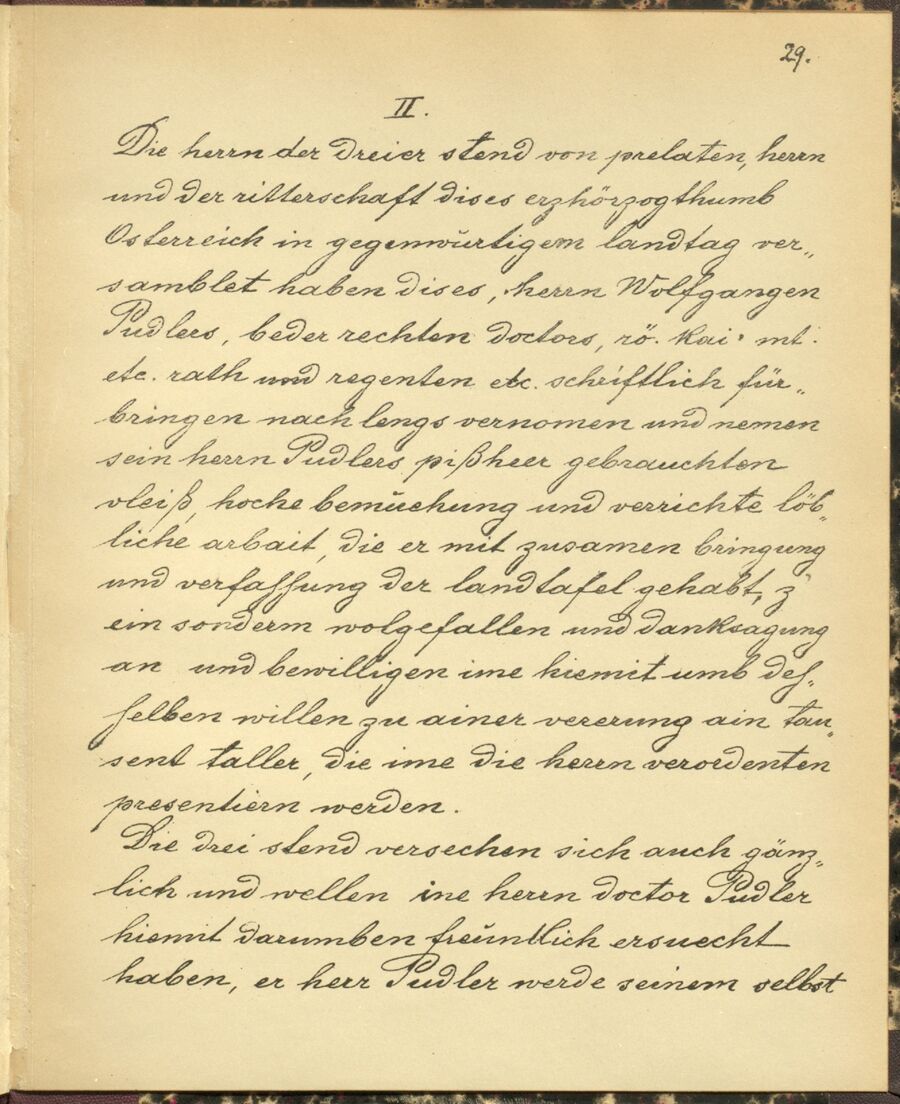 29.
II.
Die herrn der dreier stend von prelaten, herrn
und der ritterschaft dises erzhörzogthumb
Österreich in gegenwürtigem landtag ver„
samblet haben dises, herrn Wolfgangen
Püdlers, beder rechten doctors, rö. kai. mt.
etc. rath und regenten etc. schriftlich für„
bringen nach lengs vernomen und nemen
sein herrn Püdlers pißheer gebrauchten
vleiß, hoche bemüehung und verrichte löb„
liche arbait, die er mit zusamen bringung
und verfassung der landtafel gehabt, z
ein sonderm wolgefallen und danksagung
an und bewilligen ime hiemit umb des„
selben willen zu ainer vererung ain tau„
sent taller, die ime die herrn verordenten
presentiern werden.
Die drei stend versechen sich auch gänz„
lich und wellen ine herrn doctor Püdler
hiemit darumben freüntlich ersuecht
haben, er herr Püdler werde seinem selbst